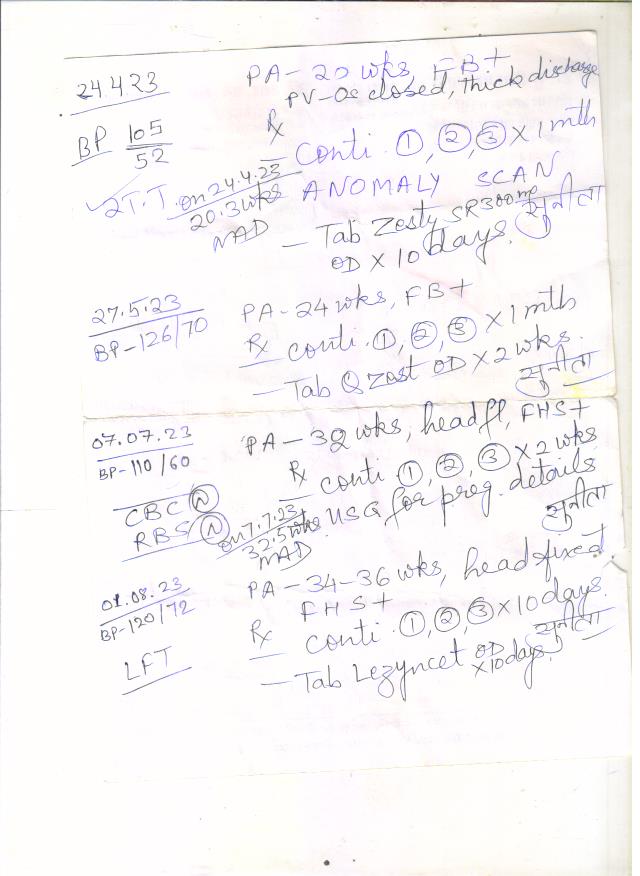 24.4.23
PA - 20 wks, FB+
PV - Os closed, thick discharge
BP 105/52
Rx
- Conti. ①, ②, ③ X 1 mth
✓ 2T.T. on 24.4.23
ANOMALY SCAN
20.3 wks
NAD
- Tab Zesty SR 300 mg
OD X 10 days.
सुनीता
27.5.23
PA - 24 wks, FB+
BP - 126/70
Rx conti. ①, ②, ③ X 1 mth
- Tab Q Zest OD X 2 wks.
सुनीता
07.07.23
PA - 32 wks, head fl, FHS+
BP - 110/60
Rx conti ①, ②, ③ X 2 wks
CBC Ⓝ
RBS Ⓝ
on 7.7.23
USG for preg. details
32.5 wks
NAD
सुनीता
01.08.23
PA - 34-36 wks, head fixed
BP - 120/72
FHS+
Rx conti. ①, ②, ③ X 10 days.
LFT
सुनीता
- Tab Lezyncet OD
X 10 days.